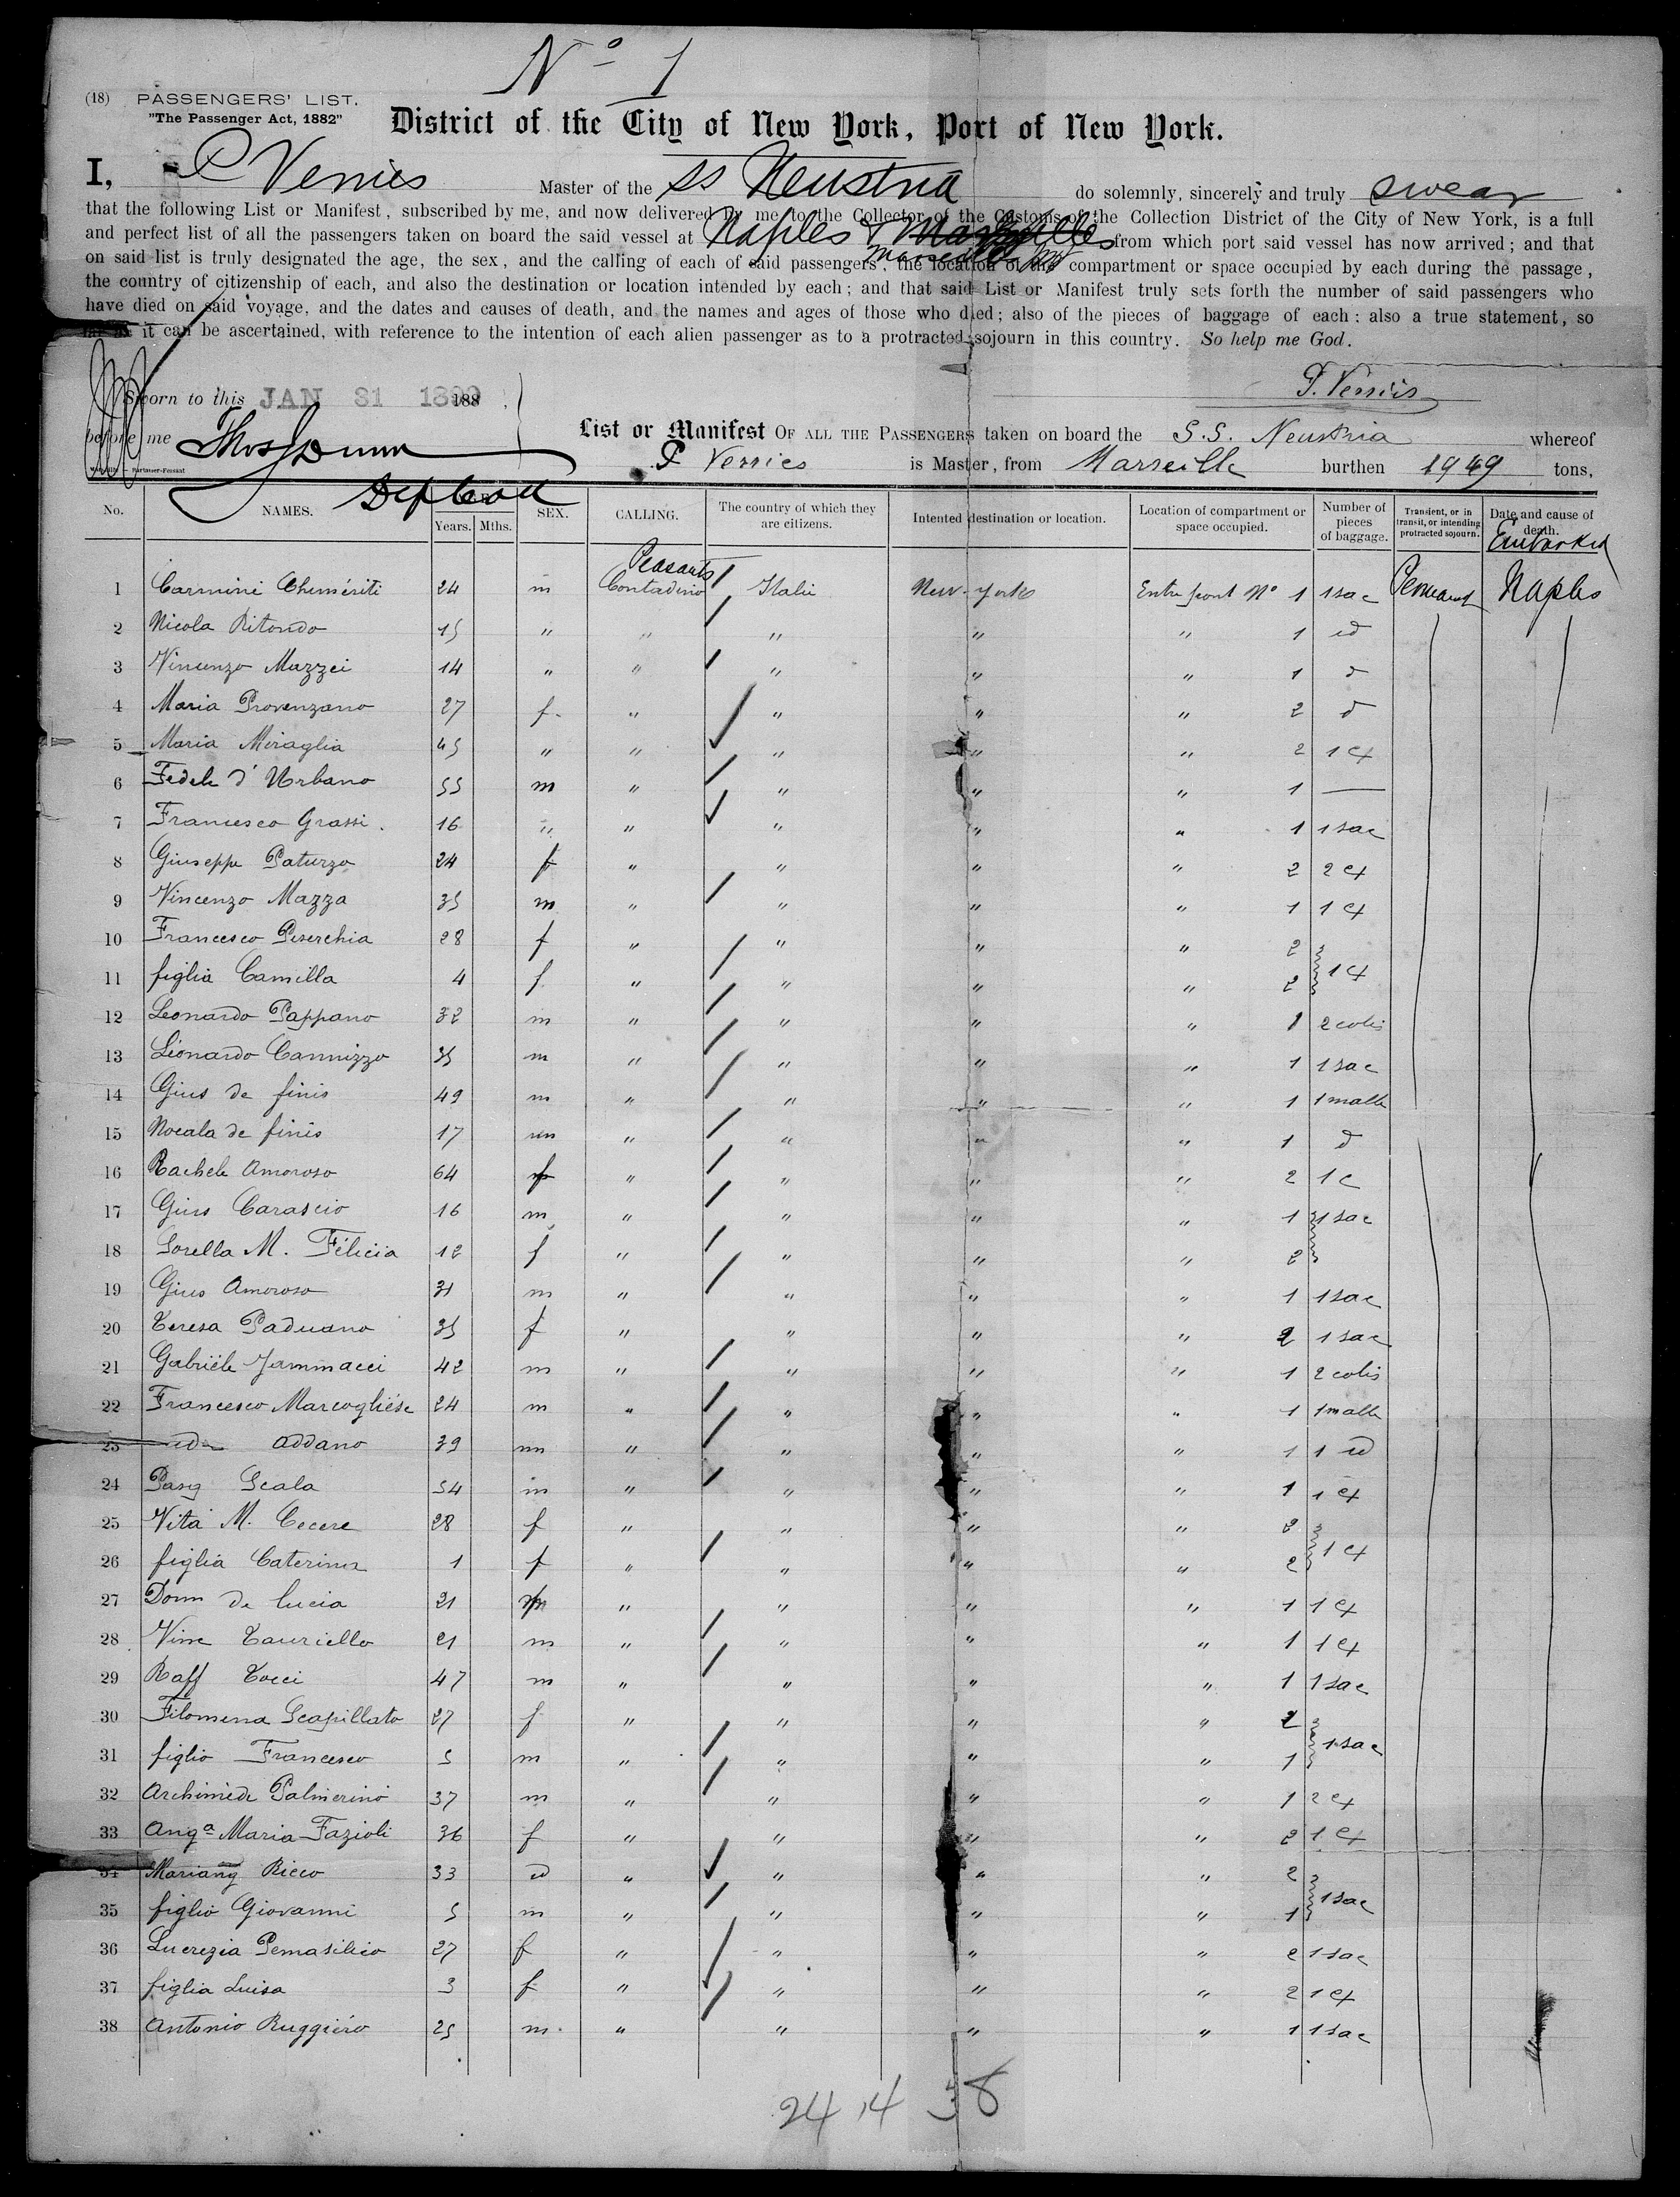 Nº 1
(18) PASSENGERS' LIST.
"The Passenger Act, 1882"
District of the City of New York, Port of New York.
I, P Verries Master of the SS Neustria do solemnly, sincerely and truly swear
that the following List or Manifest, subscribed by me, and now delivered by me to the Collector of the Customs of the Collection District of the City of New York, is a full
and perfect list of all the passengers taken on board the said vessel at Naples & Marseilles from which port said vessel has now arrived; and that
on said list is truly designated the age, the sex, and the calling of each of said passengers, the location of the compartment or space occupied by each during the passage,
the country of citizenship of each, and also the destination or location intended by each; and that said List or Manifest truly sets forth the number of said passengers who
have died on said voyage, and the dates and causes of death, and the names and ages of those who died; also of the pieces of baggage of each: also a true statement, so
far as it can be ascertained, with reference to the intention of each alien passenger as to a protracted sojourn in this country. So help me God.
P. Verries
Sworn to this JAN 31 188
before me Thos J Dunn
Dep Coll
List or Manifest OF ALL THE PASSENGERS taken on board the S.S. Neustria whereof
P Verries is Master, from Marseille burthen 1949 tons,
No. NAMES. Years. Mths. SEX. CALLING. The country of which they are citizens. Intended destination or location. Location of compartment or space occupied. Number of pieces of baggage. Transient, or in transit, or intending protracted sojourn. Date and cause of death.
Peasants Embarked
1 Carmini Chimériti 24 m Contadino Italie New-york Entrepont Nº 1 1 sac Permanent Naples
2 Nicola Ritondo 15 " " " " " 1 id
3 Vincenzo Mazzei 14 " " " " " 1 d
4 Maria Provenzano 27 f. " " " " 2 d
5 Maria Miraglia 45 " " " " " 2 1 cx
6 Fedele d'Urbano 55 m " " " " 1 —
7 Francesco Grassi. 16 " " " " " 1 1 sac
8 Giuseppe Paturzo 24 f " " " " 2 2 cx
9 Vincenzo Mazza 35 m " " " " 1 1 cx
10 Francesco Peserchia 28 f " " " " 2
11 figlia Camilla 4 f " " " " 2 1 cx
12 Leonardo Pappano 32 m " " " " 1 2 colis
13 Léonardo Cannizzo 35 m " " " " 1 1 sac
14 Gius de finis 49 m " " " " 1 1 malle
15 Nocala de finis 17 m " " " " 1 d
16 Rachele Amoroso 64 f " " " " 2 1 c
17 Gius Carascio 16 m " " " " 1 1 sac
18 Sorella M. Félicia 12 f " " " " 2
19 Gius Amoroso 31 m " " " " 1 1 sac
20 Teresa Paduano 35 f " " " " 2 1 sac
21 Gabriële Jammacci 42 m " " " " 1 2 colis
22 Francesco Marcogliése 24 m " " " " 1 1 malle
23 Addano 39 m " " " " 1 1 id
24 Pasq Scala 54 m " " " " 1 1 cx
25 Vita M. Cecere 28 f " " " " 2
26 figlia Caterina 1 f " " " " 2 1 cx
27 Dom de lucia 21 m " " " " 1 1 cx
28 Vinc Tauriello 21 m " " " " 1 1 cx
29 Raff Tocci 47 m " " " " 1 1 sac
30 Filomena Scapillato 27 f " " " " 2
31 figlio Francesco 5 m " " " " 1 1 sac
32 Archimède Palmerino 37 m " " " " 1 2 cx
33 Angª Maria Fazioli 36 f " " " " 2 1 cx
34 Mariang Ricco 33 id " " " " 2
35 figlio Giovanni 5 m " " " " 1 1 sac
36 Lucrezia Pemasilico 27 f " " " " 2 1 sac
37 figlia Luisa 3 f " " " " 2 1 cx
38 Antonio Ruggiéro 25 m. " " " " 1 1 sac
24 14 38